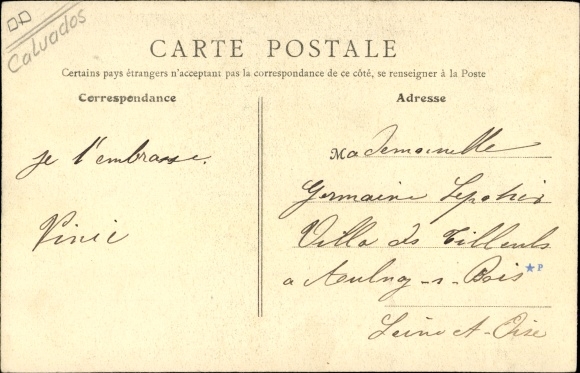 Calvados
CARTE POSTALE
Certains pays étrangers n'acceptant pas la correspondance de ce côté, se renseigner à la Poste
Correspondance
Adresse
Je t'embrasse.
Mademoiselle
Germaine
Villa des Tilleuls
a Aulnay-s-Bois
P
Seine et Oise